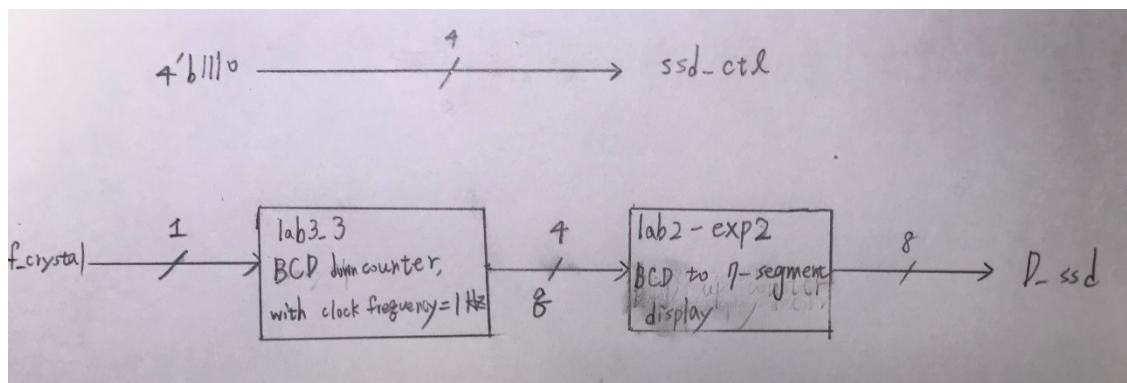 4
4'b1110 ssd_ctl
1
f_crystal
lab3_3
BCD down counter,
with clock frequency=1Hz
4
8
lab2-exp2
BCD to 7-segment
display
8
D_ssd